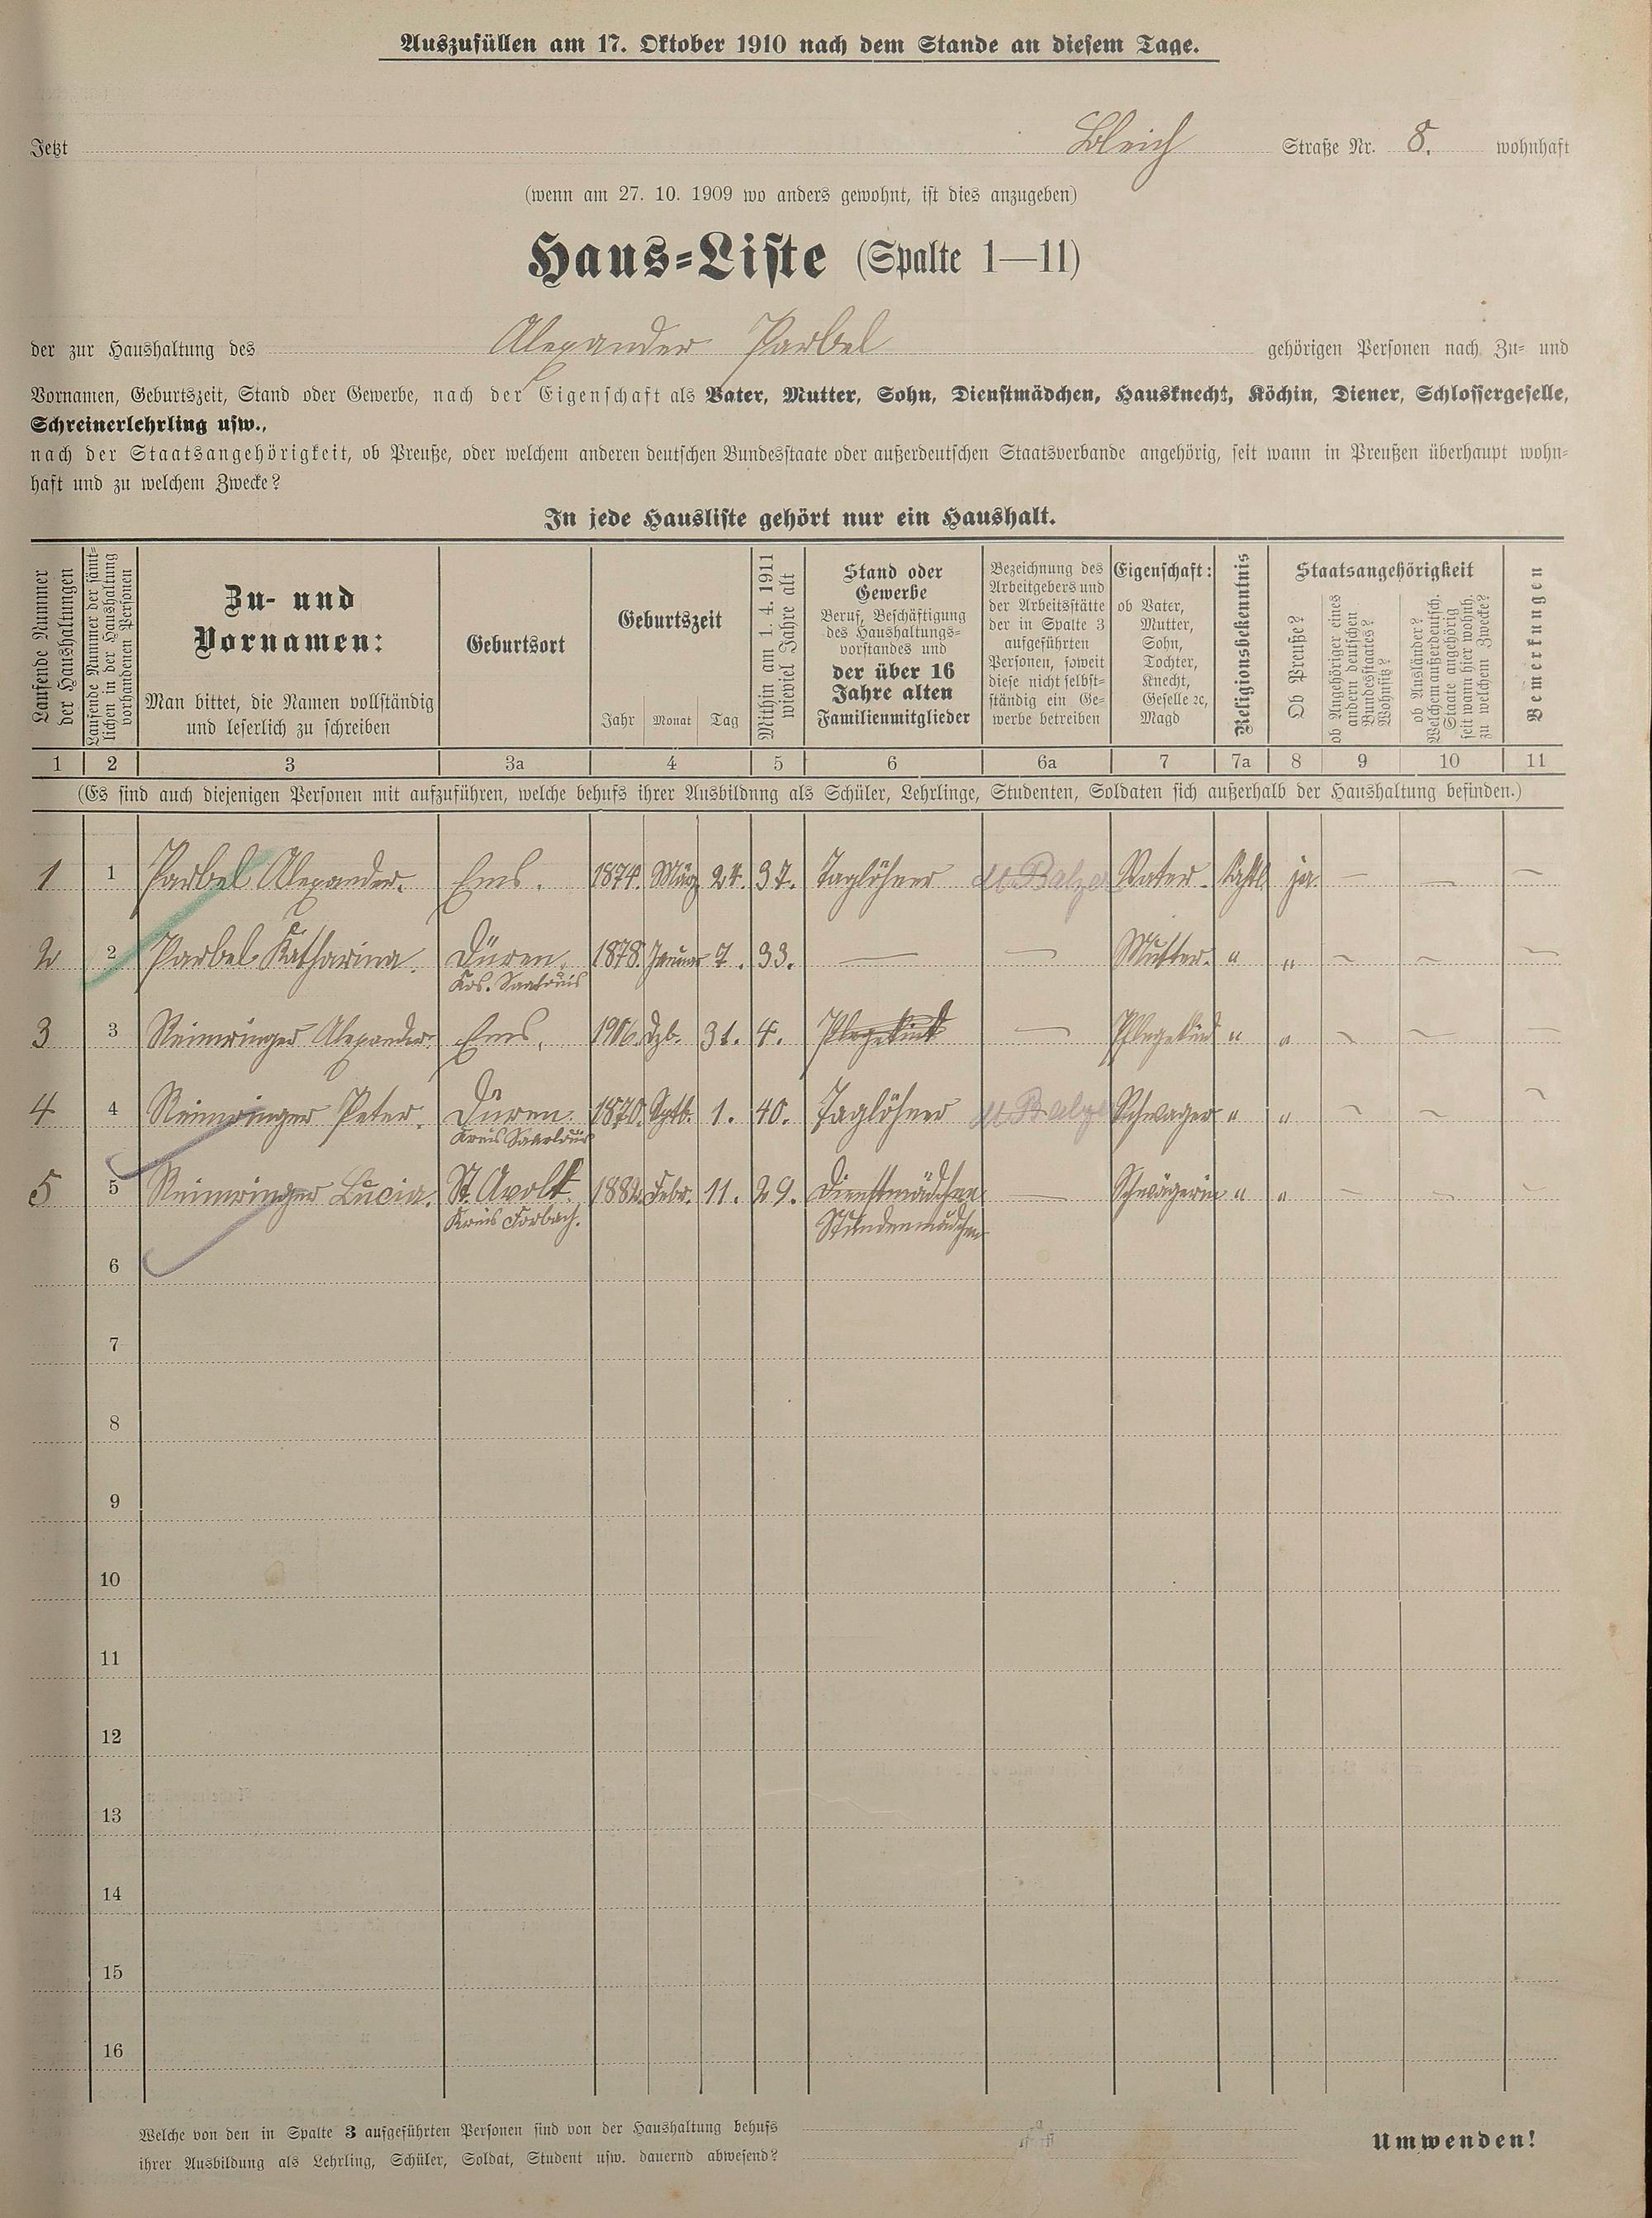 Auszufüllen am 17. Oktober 1910 nach dem Stande an diesem Tage.
Jetzt Bleich Straße Nr. 8. wohnhaft
(wenn am 27. 10. 1909 wo anders gewohnt, ist dies anzugeben)
Haus-Liste (Spalte 1—11)
der zur Haushaltung des Alexander Parbel gehörigen Personen nach Zu- und
Vornamen, Geburtszeit, Stand oder Gewerbe, nach der Eigenschaft als Vater, Mutter, Sohn, Dienstmädchen, Hausknecht, Köchin, Diener, Schlossergeselle,
Schreinerlehrling usw.,
nach der Staatsangehörigkeit, ob Preuße, oder welchem anderen deutschen Bundesstaate oder außerdeutschen Staatsverbande angehörig, seit wann in Preußen überhaupt wohn-
haft und zu welchem Zwecke?
In jede Hausliste gehört nur ein Haushalt.
Laufende Nummer
der Haushaltungen
Laufende Nummer der sämt-
lichen in der Haushaltung
vorhandenen Personen
Zu- und
Vornamen:
Man bittet, die Namen vollständig
und leserlich zu schreiben
Geburtsort
Geburtszeit
Jahr Monat Tag
Mithin am 1. 4. 1911
wieviel Jahre alt
Stand oder
Gewerbe
Beruf, Beschäftigung
des Haushaltungs-
vorstandes und
der über 16
Jahre alten
Familienmitglieder
Bezeichnung des
Arbeitgebers und
der Arbeitsstätte
der in Spalte 3
aufgeführten
Personen, soweit
diese nicht selbst-
ständig ein Ge-
werbe betreiben
Eigenschaft:
ob Vater,
Mutter,
Sohn,
Tochter,
Knecht,
Geselle 2c,
Magd
Religionsbekenntnis
Staatsangehörigkeit
Ob Preuße?
ob Angehöriger eines
andern deutschen
Bundesstaates?
Wohnsitz?
ob Ausländer?
Welchem außerdeutsch.
Staate angehörig
seit wann hier wohnh.
zu welchem Zwecke?
Bemerkungen
1 2 3 3a 4 5 6 6a 7 7a 8 9 10 11
(Es sind auch diejenigen Personen mit aufzuführen, welche behufs ihrer Ausbildung als Schüler, Lehrlinge, Studenten, Soldaten sich außerhalb der Haushaltung befinden.)
1 1 Parbel Alexander. Ems. 1874. März 24. 37. Taglöhner Balzer Vater. Kathl. ja. — — —
2 2 Parbel Katharina. Düren. 1878. Januar 7. 33. — — Mutter. " " — — —
Krs. Saarlouis
3 3 Reimringer Alexander. Ems. 1906. Dzb. 31. 4. Pflegekind — Pflegekind " " — — —
4 4 Reimringer Peter. Düren. 1870. Sptb. 1. 40. Taglöhner Balzer Schwager " " — — —
Kreis Saarlouis
5 5 Reimringer Lucia. St. Avold. 1882. Febr. 11. 29. Dienstmädchen — Schwägerin " " — — —
Kreis Forbach. Stundenmädchen
6
7
8
9
10
11
12
13
14
15
16
Welche von den in Spalte 3 aufgeführten Personen sind von der Haushaltung behufs
ihrer Ausbildung als Lehrling, Schüler, Soldat, Student usw. dauernd abwesend?
Umwenden!